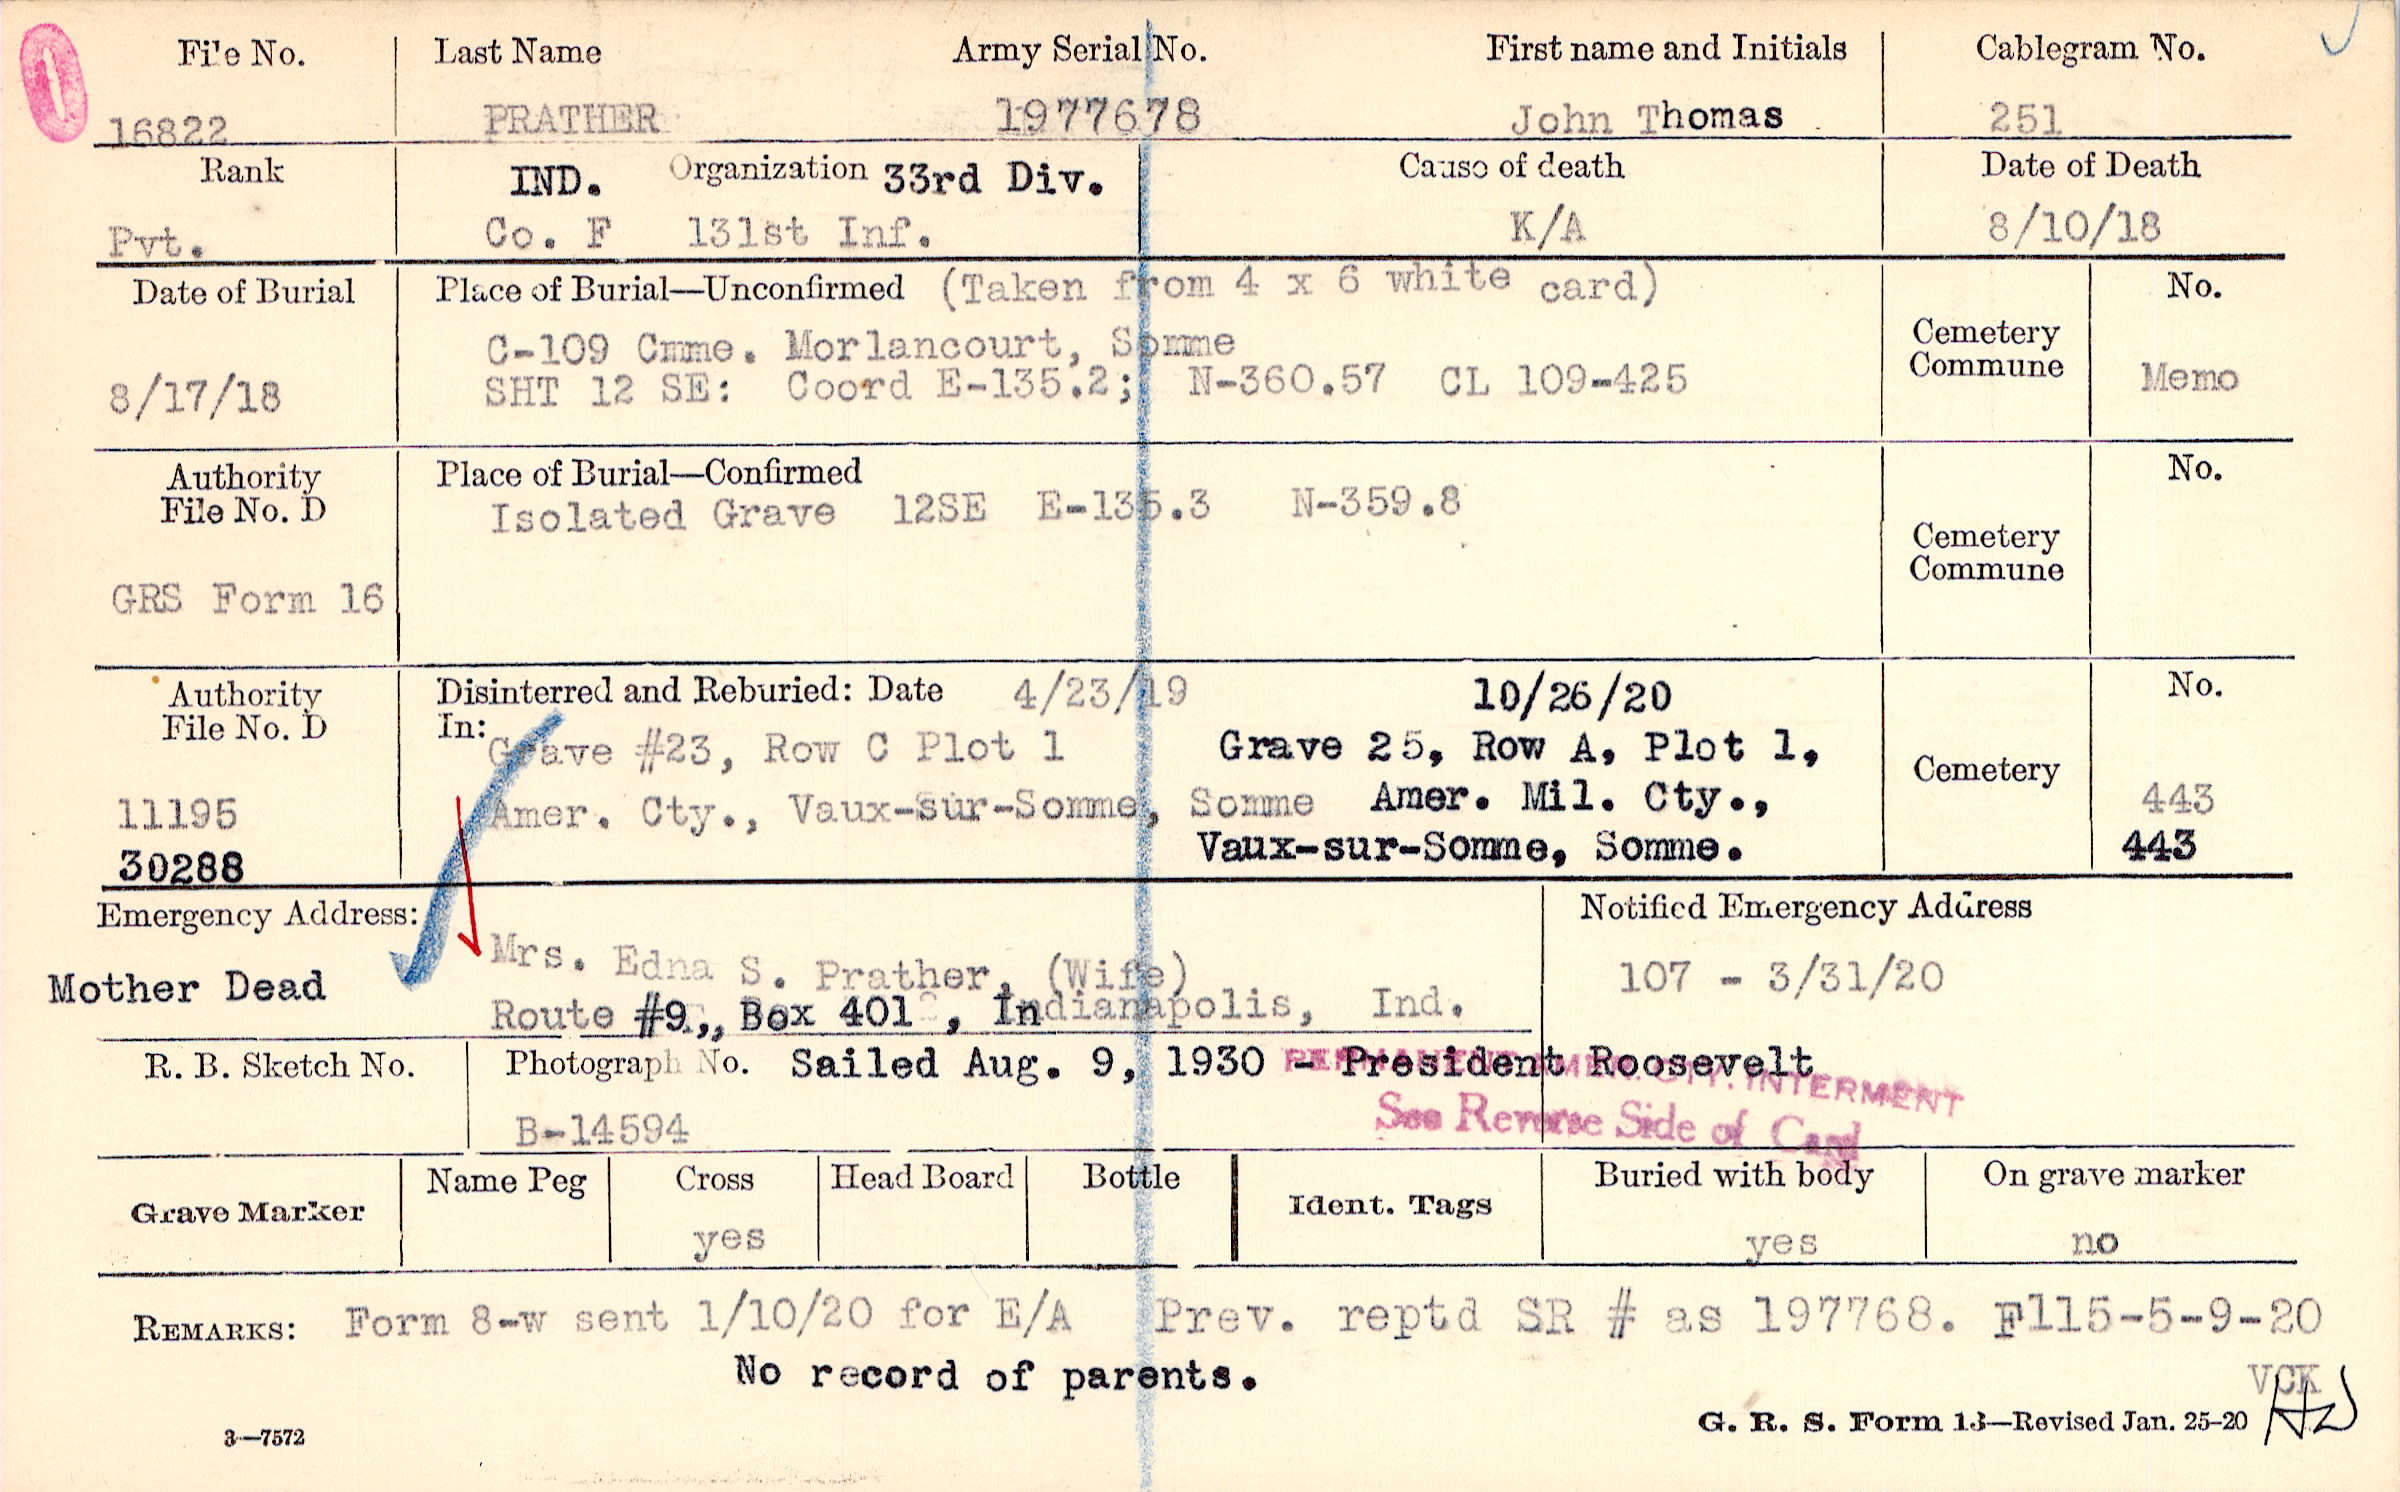 File No. Last Name Army Serial No. First name and Initials Cablegram No.
16822 PRATHER 1977678 John Thomas 251
Rank IND. Organization 33rd Div. Cause of death Date of Death
Pvt. Co. F 131st Inf. K/A 8/10/18
Date of Burial Place of Burial—Unconfirmed (Taken from 4 x 6 white card) No.
C-109 Cmme. Morlancourt, Somme Cemetery
8/17/18 SHT 12 SE: Coord E-135.2; N-360.57 CL 109-425 Commune Memo
Authority Place of Burial—Confirmed No.
File No. D Isolated Grave 12SE E-135.3 N-359.8
Cemetery
Commune
GRS Form 16
Authority Disinterred and Reburied: Date 4/23/19 10/26/20 No.
File No. D In: Grave #23, Row C Plot 1 Grave 25, Row A, Plot 1,
Cemetery
11195 Amer. Cty., Vaux-sur-Somme, Somme Amer. Mil. Cty., 443
30288 Vaux-sur-Somme, Somme. 443
Emergency Address: Notified Emergency Address
Mrs. Edna S. Prather, (Wife) 107 - 3/31/20
Mother Dead
Route #9,, Box 401 , Indianapolis, Ind.
R. B. Sketch No. Photograph No. Sailed Aug. 9, 1930 - President Roosevelt
INTERMENT
See Reverse Side of Card
B-14594
Grave Marker Name Peg Cross Head Board Bottle Ident. Tags Buried with body On grave marker
yes yes no
REMARKS: Form 8-w sent 1/10/20 for E/A Prev. reptd SR # as 197768. F115-5-9-20
No record of parents.
VCK
3—7572 G. R. S. Form 13—Revised Jan. 25-20